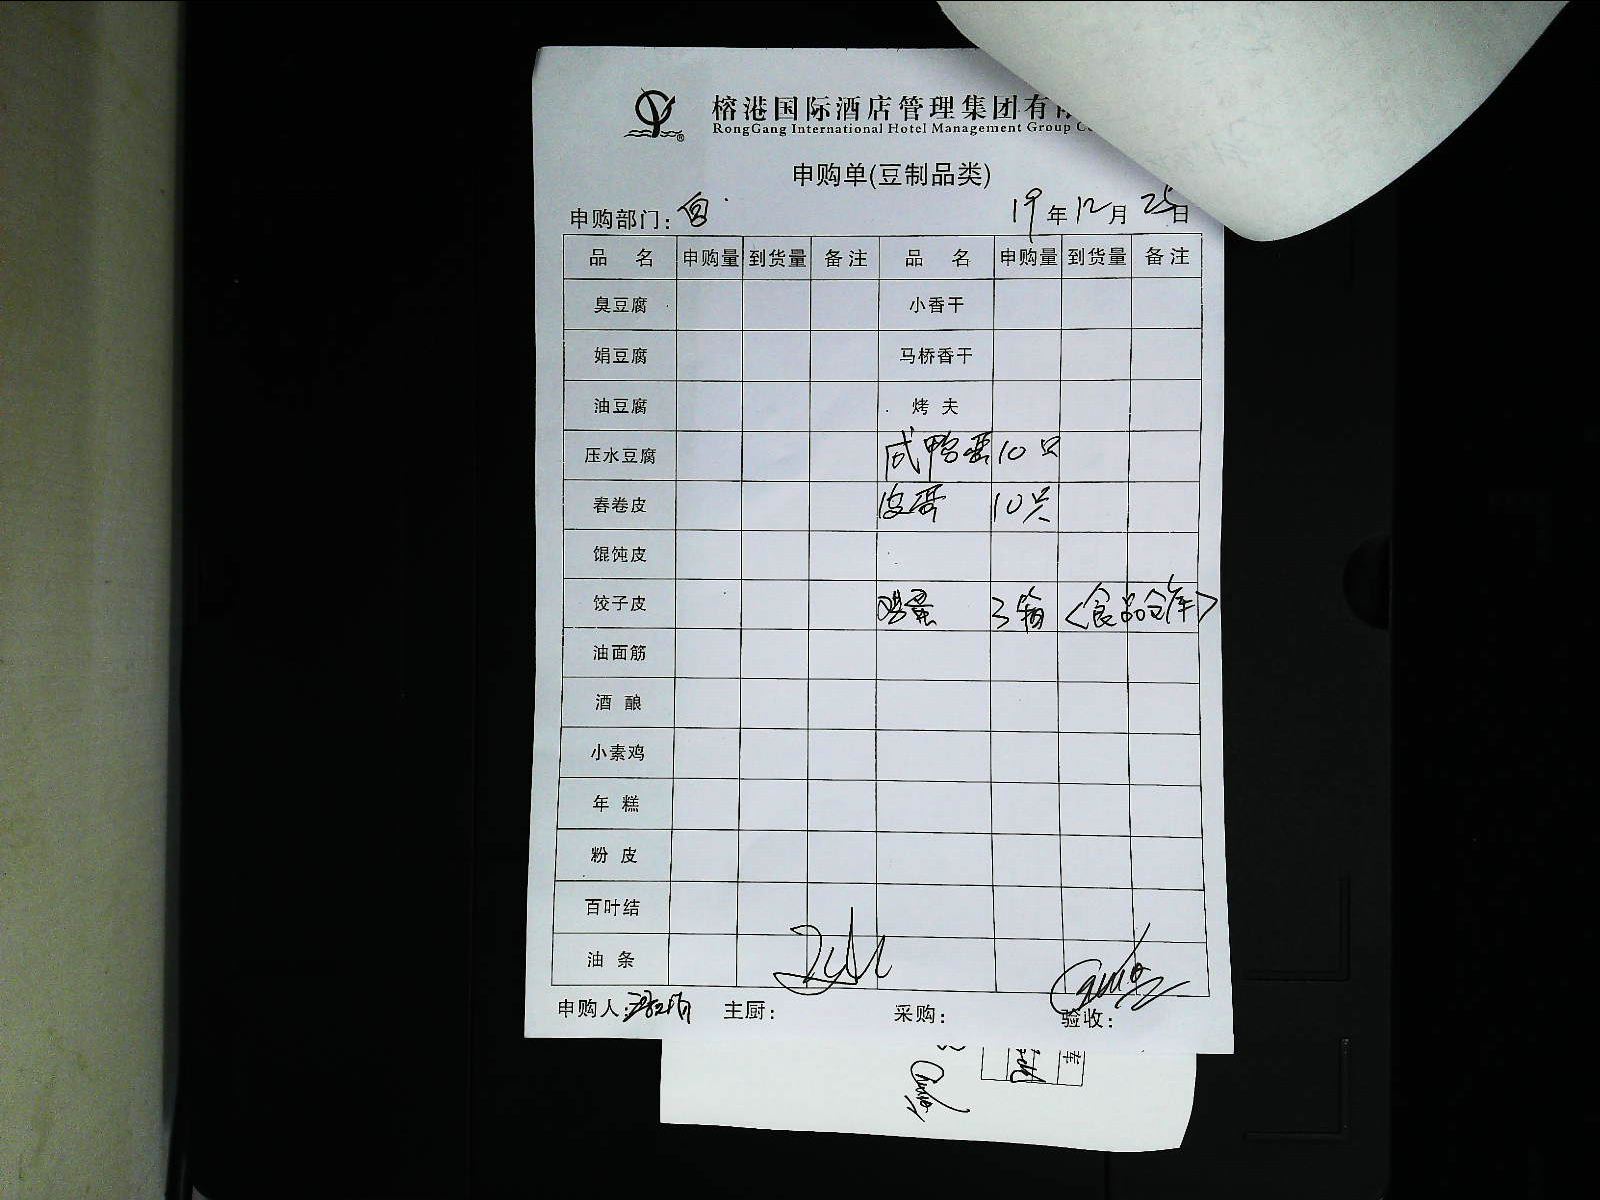 榕港国际酒店管理集团有
RongGang International Hotel Management Group
申购单(豆制品类)
申购部门: 19年12月25日
品 名 申购量 到货量 备注 品 名 申购量 到货量 备注
臭豆腐 小香干
娟豆腐 马桥香干
油豆腐 烤 夫
压水豆腐 咸鸭蛋 10只
春卷皮 皮蛋 10只
馄饨皮
饺子皮 鸡蛋 3箱 <食品仓库>
油面筋
酒 酿
小素鸡
年 糕
粉 皮
百叶结
油 条
申购人: 主厨: 采购: 验收: